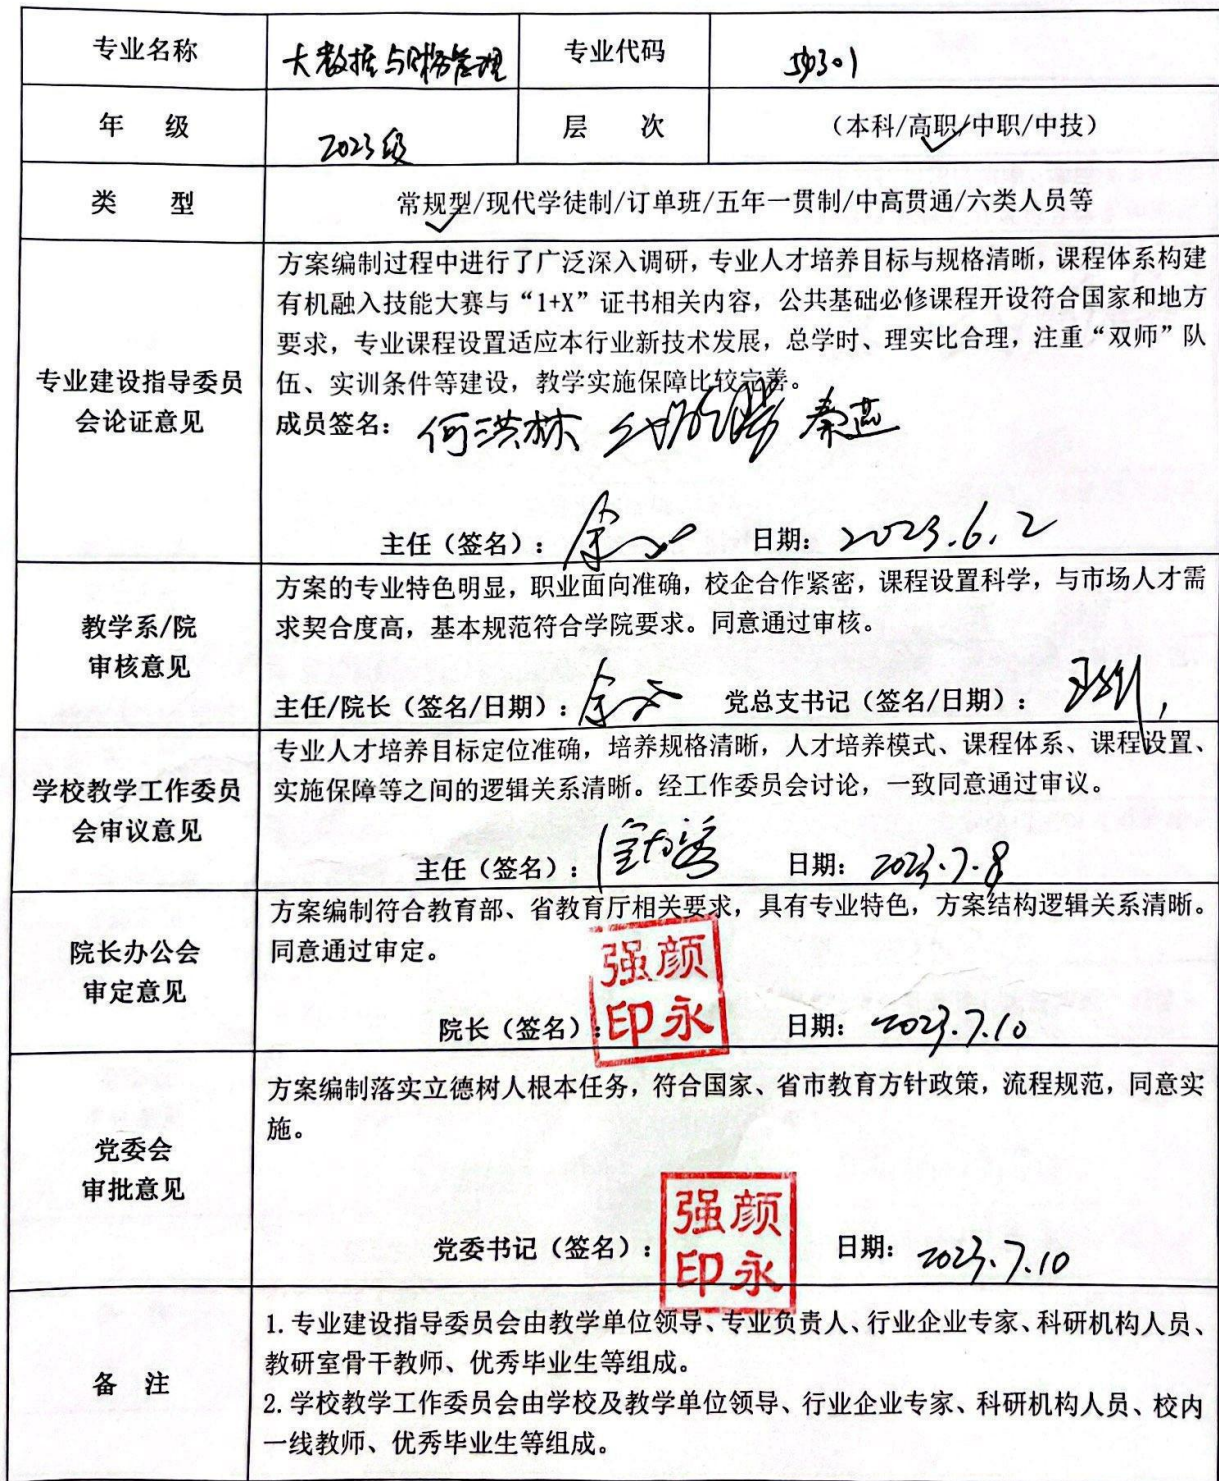 专业名称 大数据与财务管理 专业代码 530301
年 级 2023级 层 次 （本科/高职/中职/中技）
类 型 常规型/现代学徒制/订单班/五年一贯制/中高贯通/六类人员等
方案编制过程中进行了广泛深入调研，专业人才培养目标与规格清晰，课程体系构建
有机融入技能大赛与“1+X”证书相关内容，公共基础必修课程开设符合国家和地方
要求，专业课程设置适应本行业新技术发展，总学时、理实比合理，注重“双师”队
专业建设指导委员
会论证意见
伍、实训条件等建设，教学实施保障比较完善。
成员签名： 何洪林 秦燕
主任（签名）： 日期：2023.6.2
教学系/院
审核意见
方案的专业特色明显，职业面向准确，校企合作紧密，课程设置科学，与市场人才需
求契合度高，基本规范符合学院要求。同意通过审核。
主任/院长（签名/日期）： 党总支书记（签名/日期）：
学校教学工作委员
会审议意见
专业人才培养目标定位准确，培养规格清晰，人才培养模式、课程体系、课程设置、
实施保障等之间的逻辑关系清晰。经工作委员会讨论，一致同意通过审议。
主任（签名）： 日期：2023.7.8
院长办公会
审定意见
方案编制符合教育部、省教育厅相关要求，具有专业特色，方案结构逻辑关系清晰。
同意通过审定。
院长（签名）： 日期：2023.7.10
颜永
强印
党委会
审批意见
方案编制落实立德树人根本任务，符合国家、省市教育方针政策，流程规范，同意实
施。
党委书记（签名）： 日期：2023.7.10
颜永
强印
备 注
1.专业建设指导委员会由教学单位领导、专业负责人、行业企业专家、科研机构人员、
教研室骨干教师、优秀毕业生等组成。
2.学校教学工作委员会由学校及教学单位领导、行业企业专家、科研机构人员、校内
一线教师、优秀毕业生等组成。